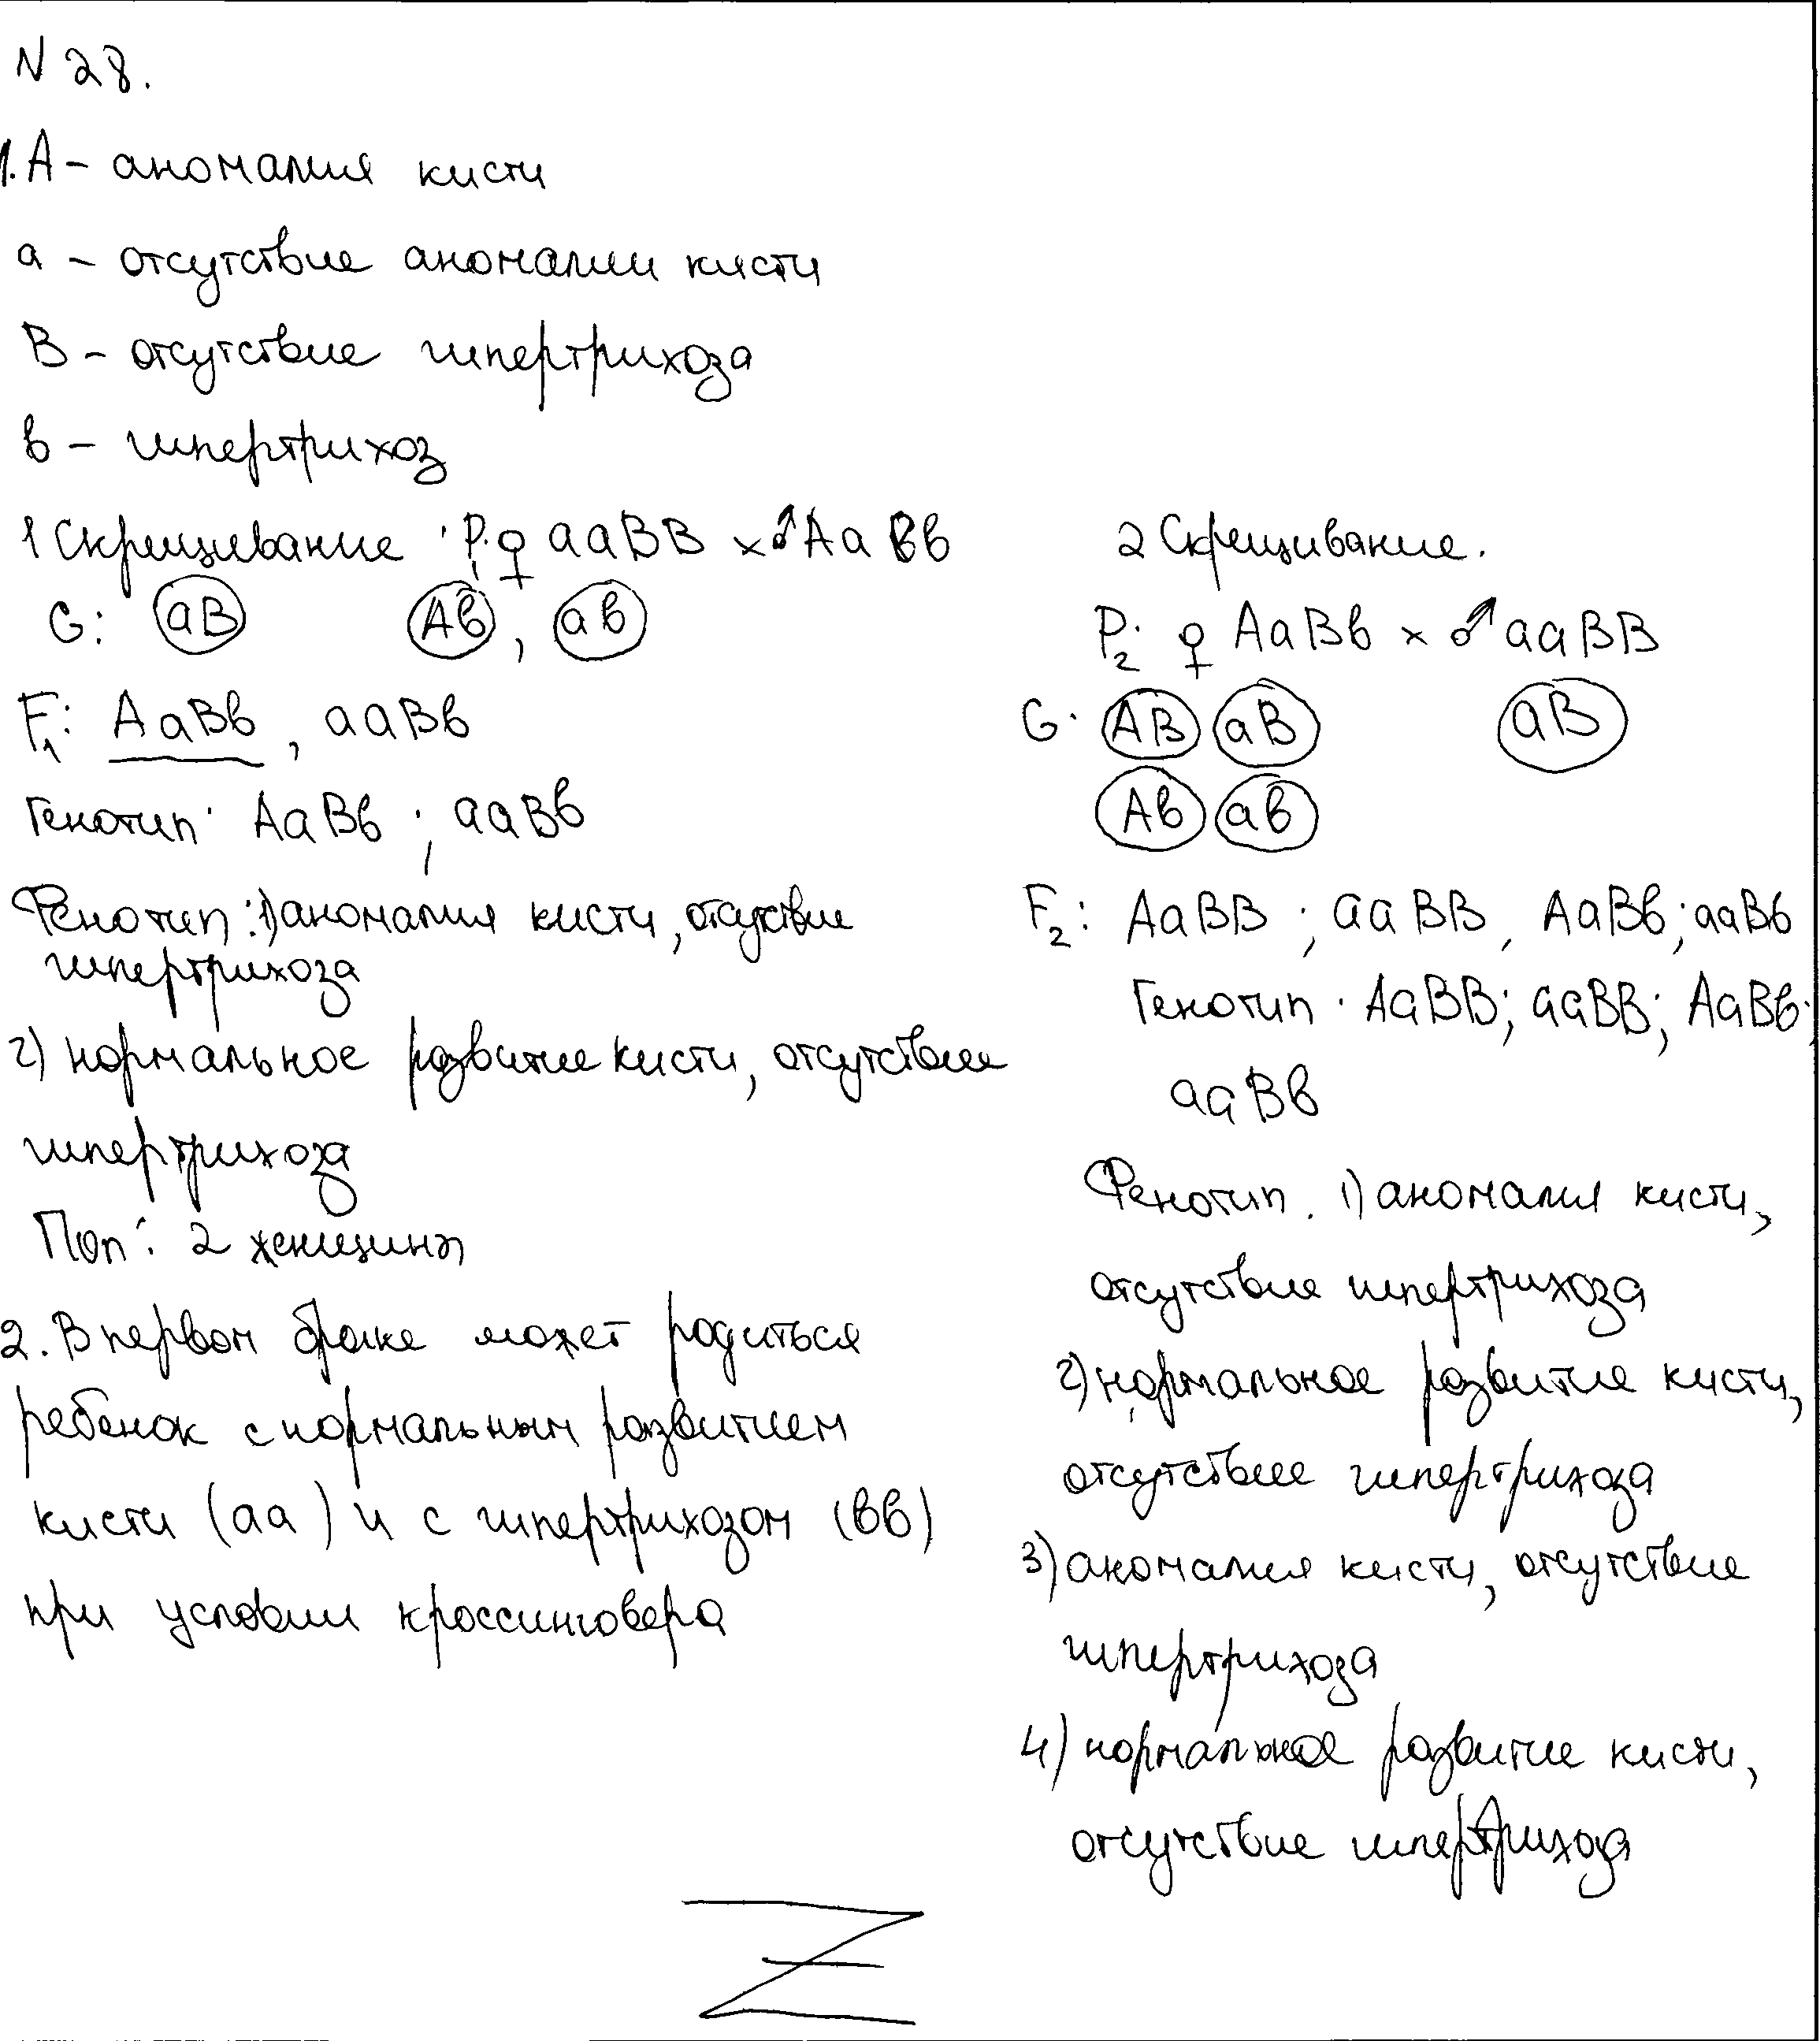 N 28.
1. А – аномалия кисти
а – отсутствие аномалии кисти
В – отсутствие гипертрихоза
в – гипертрихоз
1 Скрещивание : P: ♀ ааВВ × ♂ АаВв
G: аВ Ав , ав
F₁: АаВв , ааВв
Генотип: АаВв ; ааВв
Фенотип: 1) аномалия кисти, отсутствие
гипертрихоза
2) нормальное развитие кисти, отсутствие
гипертрихоза
Пол: 2 женщины
2. В первом браке может родиться
ребенок с нормальным развитием
кисти (аа) и с гипертрихозом (вв)
при условии кроссинговера
2 Скрещивание.
P₂: ♀ АаВв × ♂ ааВВ
G: АВ аВ аВ
Ав ав
F₂: АаВВ ; ааВВ , АаВв ; ааВв
Генотип : АаВВ; ааВВ; АаВв;
ааВв
Фенотип. 1) аномалия кисти,
отсутствие гипертрихоза
2) нормальное развитие кисти,
отсутствие гипертрихоза
3) аномалия кисти, отсутствие
гипертрихоза
4) нормальное развитие кисти,
отсутствие гипертрихоза